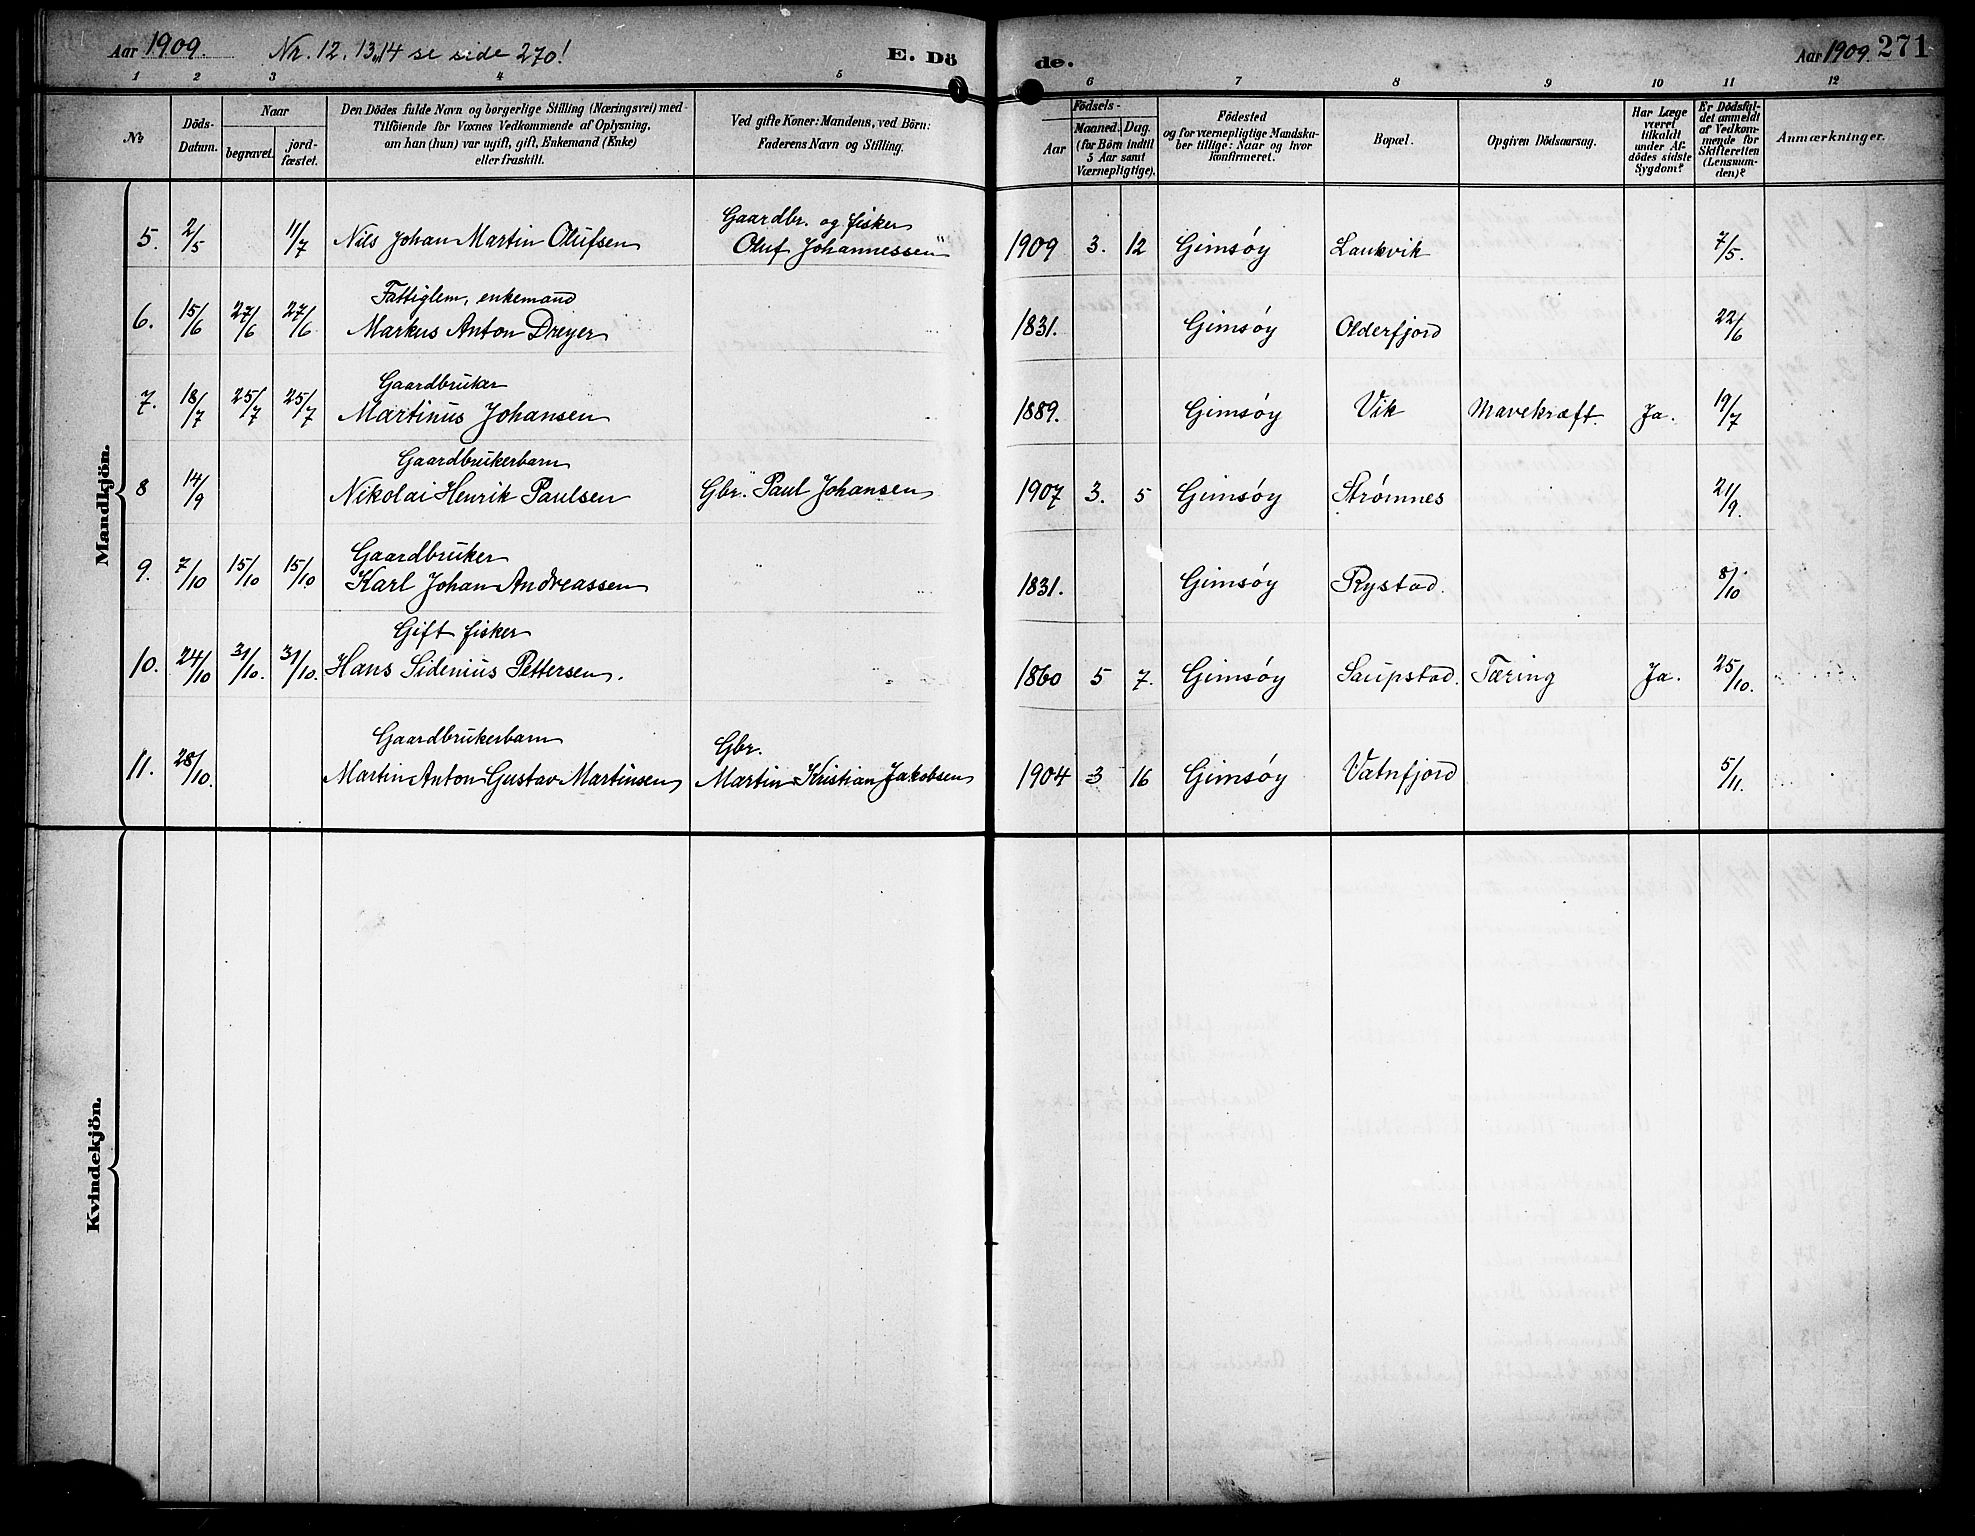 Aar 1909. Nr. 12, 13, 14 se side 270! E. Dö de. Aar 1909. 271
1 2 3 4 5 6 7 8 9 10 11 12
No
Döds-Datum.
Naar
begravet.
jord-fæstet.
Den Dödes fulde Navn og borgerlige Stilling (Næringsvei) med
Tilföiende for Voxnes Vedkommende af Oplysning,
om han (hun) var ugift, gift, Enkemand (Enke)
eller fraskilt.
Ved gifte Koner: Mandens, ved Börn:
Faderens Navn og Stilling.
Födsels-
Aar
Maaned. Dag.
(for Börn indtil
5 Aar samt
Værnepligtige).
Födested
og for værnepligtige Mandska-
ber tillige: Naar og hvor
konfirmeret.
Bopæl.
Opgiven Dödsaarsag.
Har Læge
været
tilkaldt
under Af-
dödes sidste
Sygdom?
Er Dödsfal-
det anmeldt
af Vedkom-
mende for
Skifteretten
(Lensman-
den)?
Anmærkninger.
Mandkjön.
Gaardbr. og fisker
5. 2/5 11/7 Nils Johan Martin Olufsen Oluf Johannessen 1909 3. 12 Gimsöy Laukvik 7/5.
Fattiglem, enkemand
6. 15/6 27/6 27/6 Markus Anton Dreyer 1831. Gimsöy Olderfjord 22/6
Gaardbruker
7. 18/7 25/7 25/7 Martinus Johansen 1889. Gimsöy Vik Mavekræft. Ja. 19/7
Gaardbrukerbarn
8 14/9 Nikolai Henrik Paulsen Gbr. Paul Johansen 1907 3. 5 Gimsöy Strømnes 21/9.
Gaardbruker
9. 7/10 15/10 15/10 Karl Johan Andreassen 1831. Gimsöy Rystad. 8/10
Gift fisker
10. 24/10 31/10. 31/10. Hans Sidenius Pettersen. 1860 5 7. Gimsöy Saupstad. Tæring Ja. 25/10.
Gaardbrukerbarn Gbr.
11. 28/10. Martin Anton Gustav Martinsen Martin Kristian Jakobsen 1904 3 16 Gimsöy Vatnfjord 5/11.
Kvindekjön.